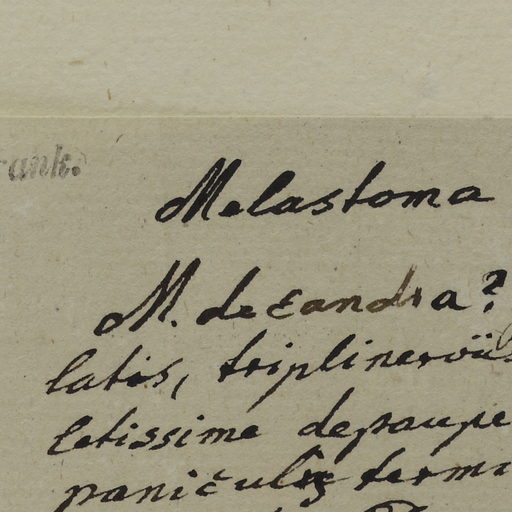 rank.
Melastoma
M. decandra?
latis, triplinerviis
letissime depaupe
paniculis termi